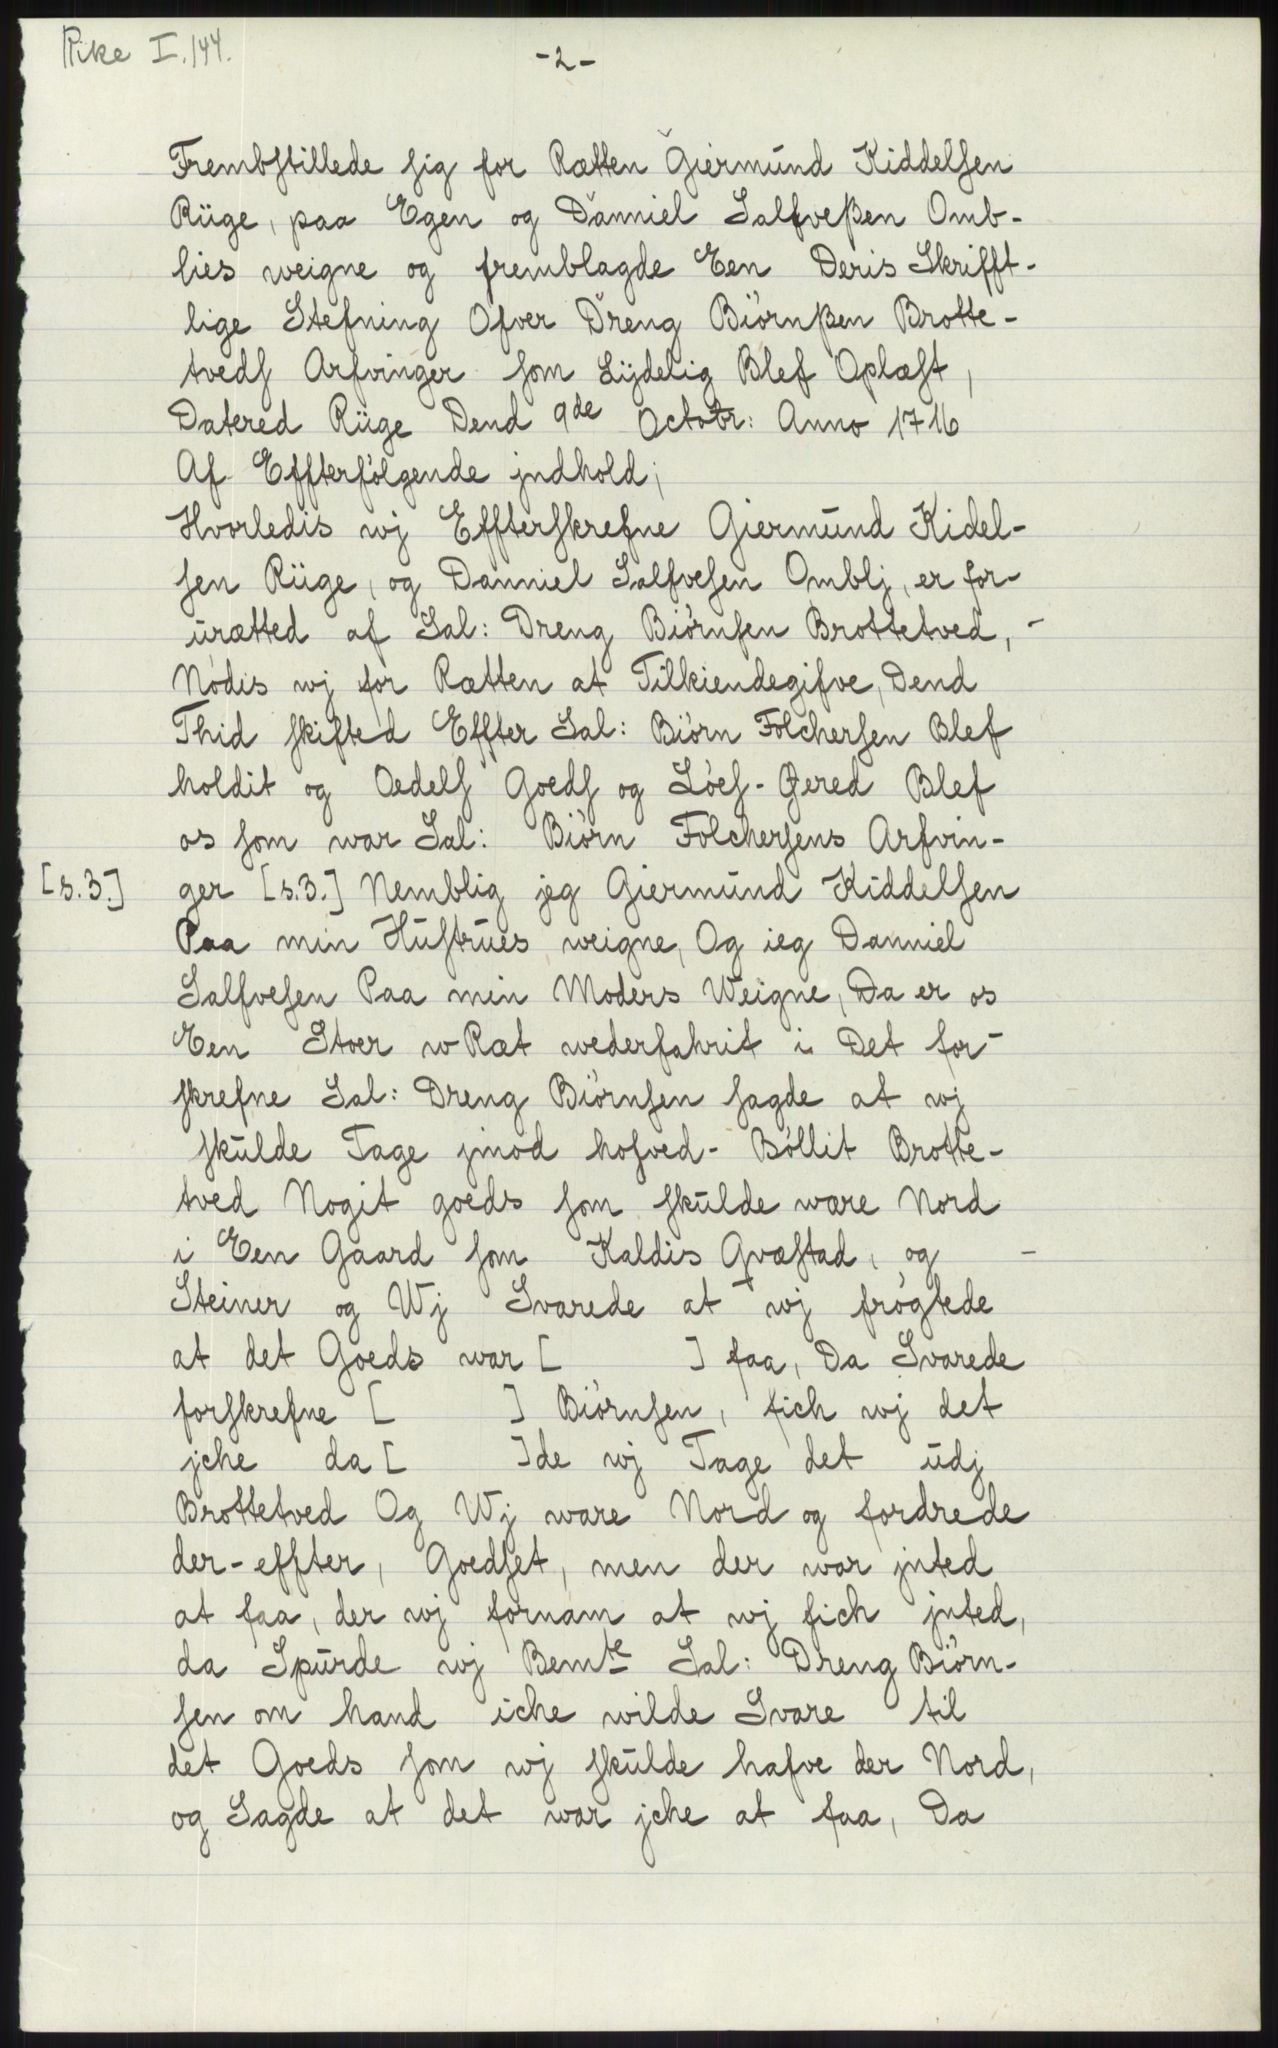 Rike I.144.
-2-
Frembstillede sig for Rætten Giermund Kiddelsen
Rüge, paa Egen og Danniel Salfveßen Omb-
lies weigne og fremblagde Een Deris Skrifft-
lige Stefning Ofver Dreng Biörnßen Brotte-
tveds Arfvinger som Lÿdelig Blef Oplæst,
Datered Rüge Dend 9de Octobr: Anno 1716
Af Effterfölgende jndhold;
Hvorledis wj Effterskrefne Giermund Kidel-
sen Rüge, og Danniel Salfvesen Omblj, er for-
urætted af Sal: Dreng Biörnsen Brottetved, -
Nödis wj for Rætten at Tilkiendegifve, Dend
Thid skifted Effter Sal: Biörn Folchersen Blef
holdit og Oedels Goeds og Löes-Öered Blef
os som war Sal: Biörn Folchersens Arfvin-
[s.3.] ger [s.3.] Nemblig jeg Giermund Kiddelsen
Paa min Hustrues weigne, Og ieg Danniel
Salfvesen Paa min Moders Weigne, Da er os
Een Stoer wRæt wederfahrit i Det for-
skrefne Sal: Dreng Biörnsen sagde at wj
skulde Tage jmod hofved-Böllit Brotte-
tved Nogit goeds som skulde wære Nord
i Een Gaard som Kaldis Qvæstad, og -
Steiner og Wj Svarede at wj frögtede
at det Goeds war [ ] faa, Da Svarede
forskrefne [ ] Biörnsen, fich wj det
jche da [ ]de wj Tage det udj
Brottetved Og Wj ware Nord og fordrede
der-effter, Goedset, men der war jnted
at faa, der wj fornam at wj fich jnted,
da Spurde wj Bemte Sal: Dreng Biörn-
sen om hand iche wilde Svare til
det Goeds som wj skulde hafve der Nord,
og Sagde at det war jche at faa, Da